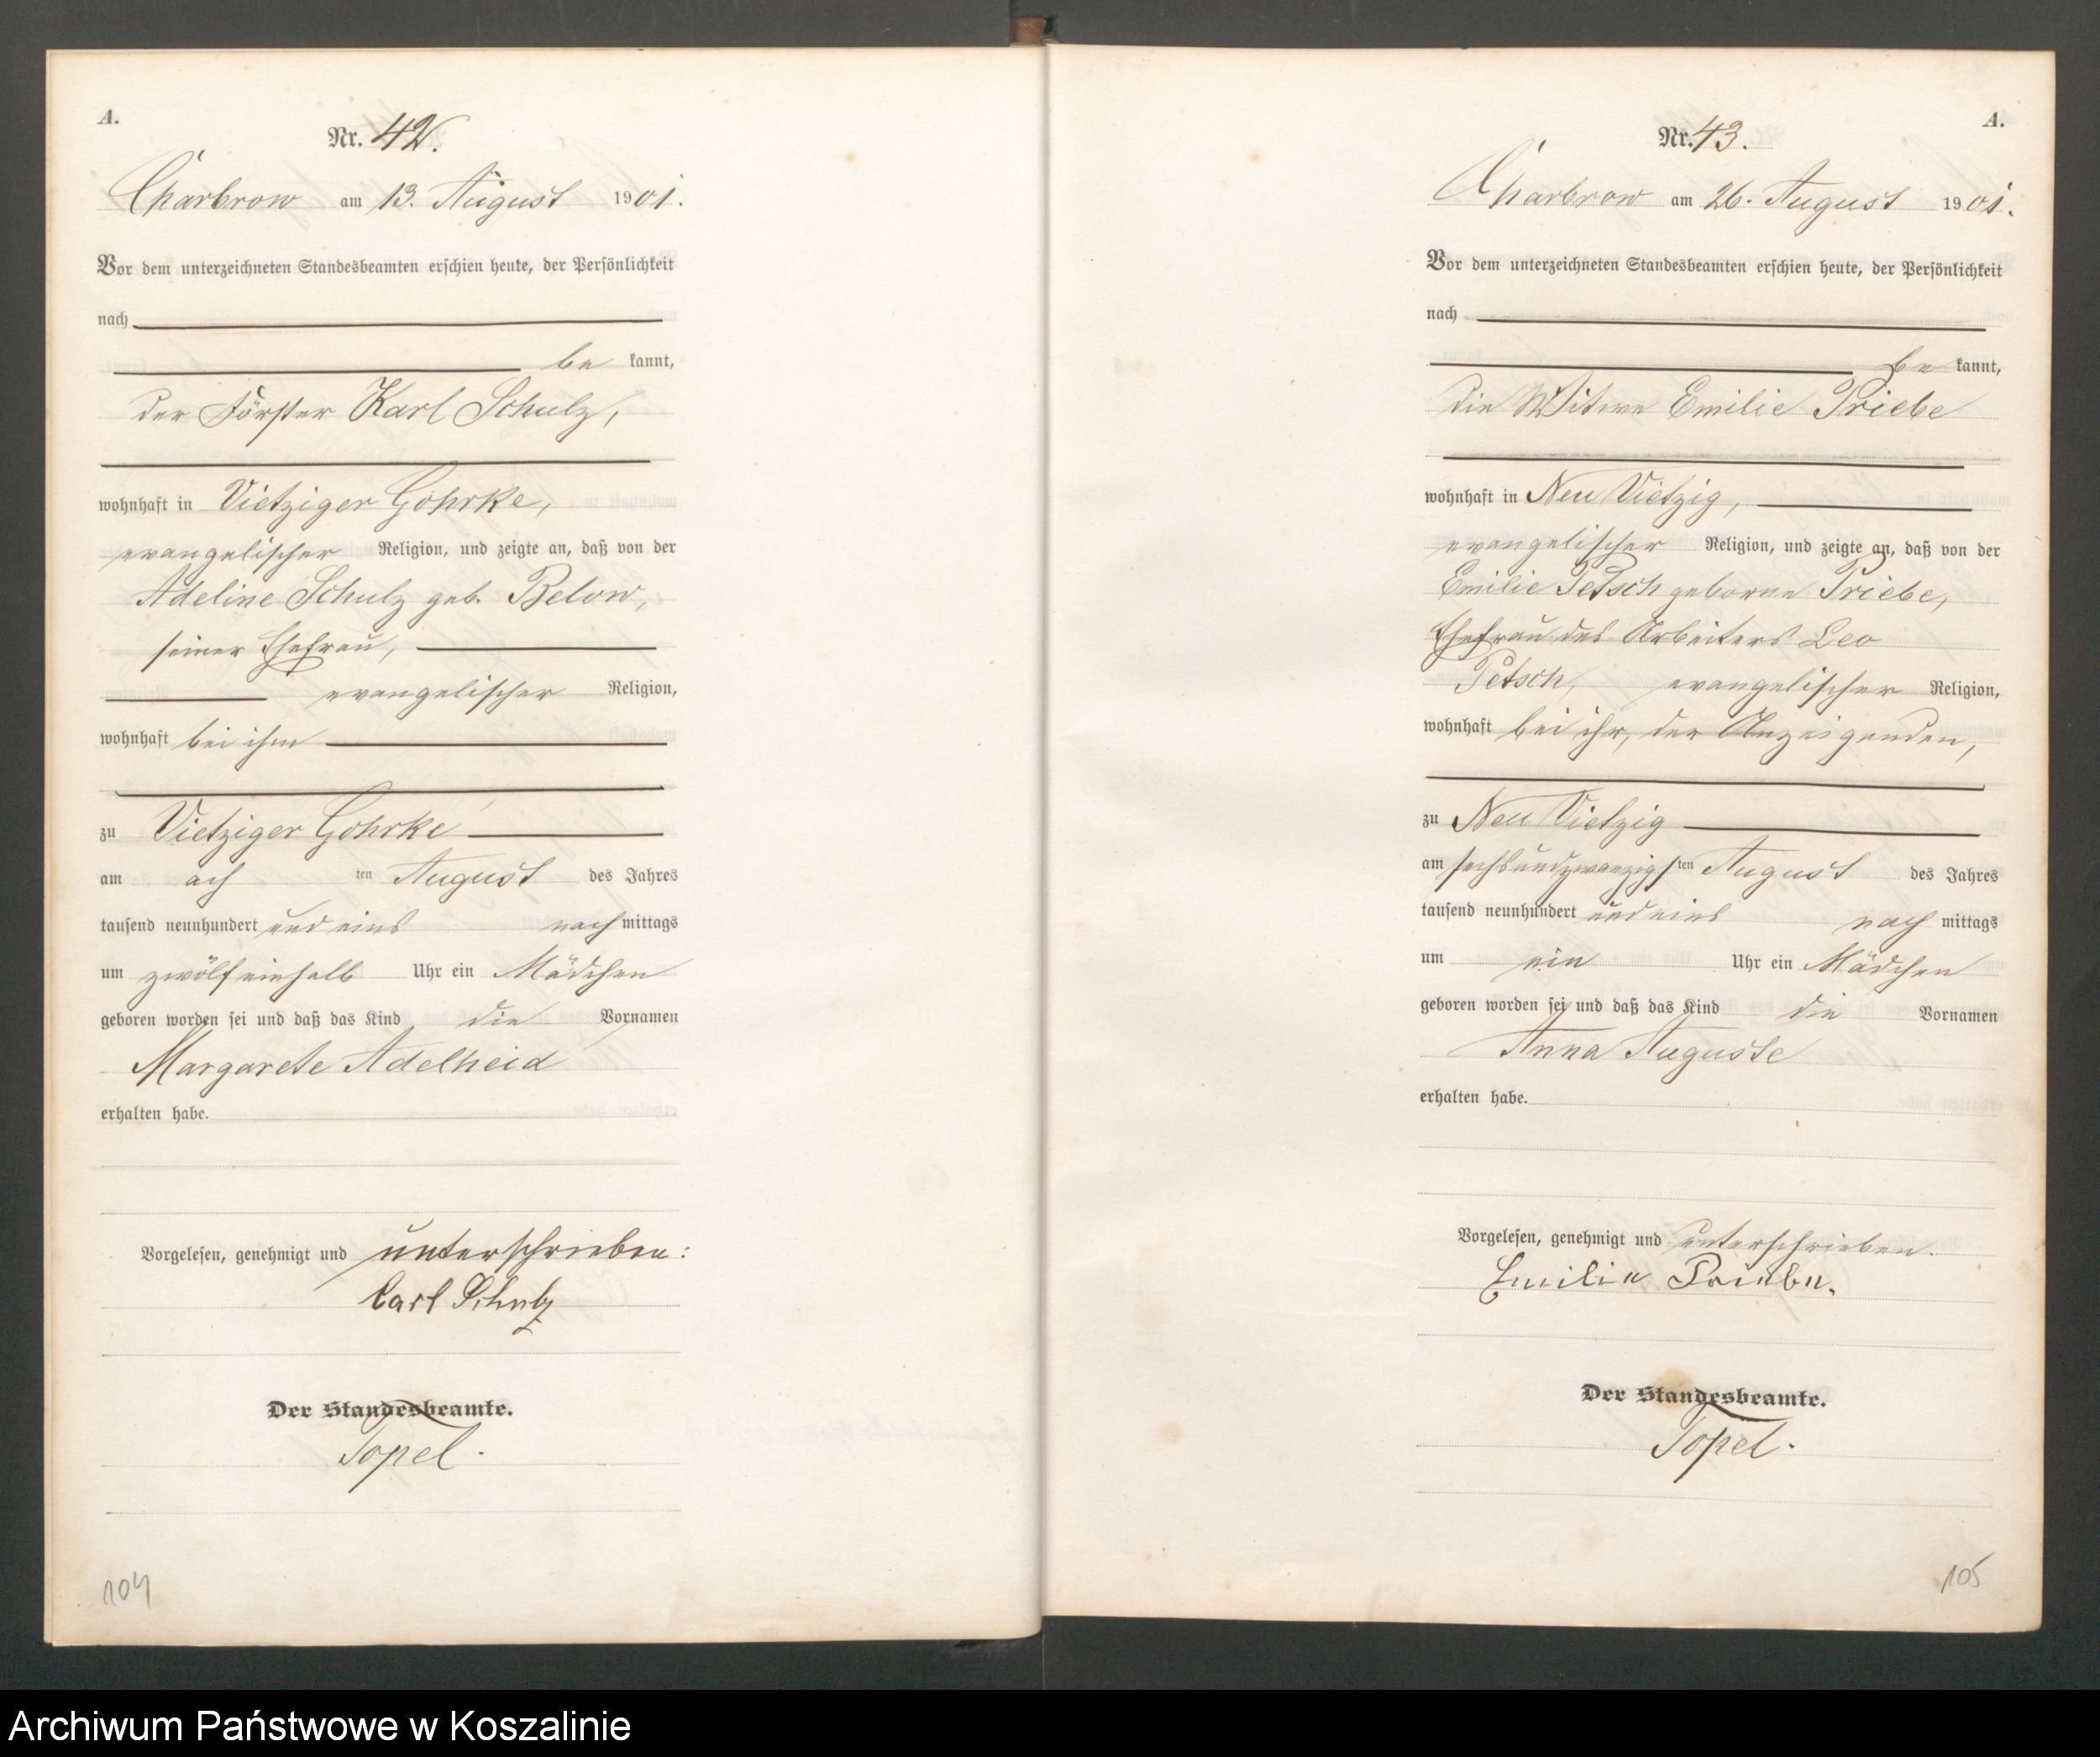 A.
Nr. 42.
Charbrow am 13. August 1901.
Vor dem unterzeichneten Standesbeamten erschien heute, der Persönlichkeit
nach
be kannt,
der Förster Karl Schulz,
wohnhaft in Vietziger Gohrke,
evangelischer Religion, und zeigte an, daß von der
Adeline Schulz geb. Below,
seiner Ehefrau,
evangelischer Religion,
wohnhaft bei ihm
zu Vietziger Gohrke
am ach ten August des Jahres
tausend neunhundert und eins nach mittags
um zwölfeinhalb Uhr ein Mädchen
geboren worden sei und daß das Kind die Vornamen
Margarete Adelheid
erhalten habe.
Vorgelesen, genehmigt und unterschrieben:
Carl Schulz
Der Standesbeamte.
Topel.
104
A.
Nr. 43.
Charbrow am 26. August 1901.
Vor dem unterzeichneten Standesbeamten erschien heute, der Persönlichkeit
nach
be kannt,
die Witwe Emilie Priebe
wohnhaft in Neu Vietzig,
evangelischer Religion, und zeigte an, daß von der
Emilie Petsch geborne Priebe,
Ehefrau des Arbeiters Leo
Petsch, evangelischer Religion,
wohnhaft bei ihr, der Anzeigenden,
zu Neu Vietzig
am sechsundzwanzigs ten August des Jahres
tausend neunhundert und eins nach mittags
um ein Uhr ein Mädchen
geboren worden sei und daß das Kind die Vornamen
Anna Auguste
erhalten habe.
Vorgelesen, genehmigt und unterschrieben.
Emilie Priebe.
Der Standesbeamte.
Topel.
105
Archiwum Państwowe w Koszalinie